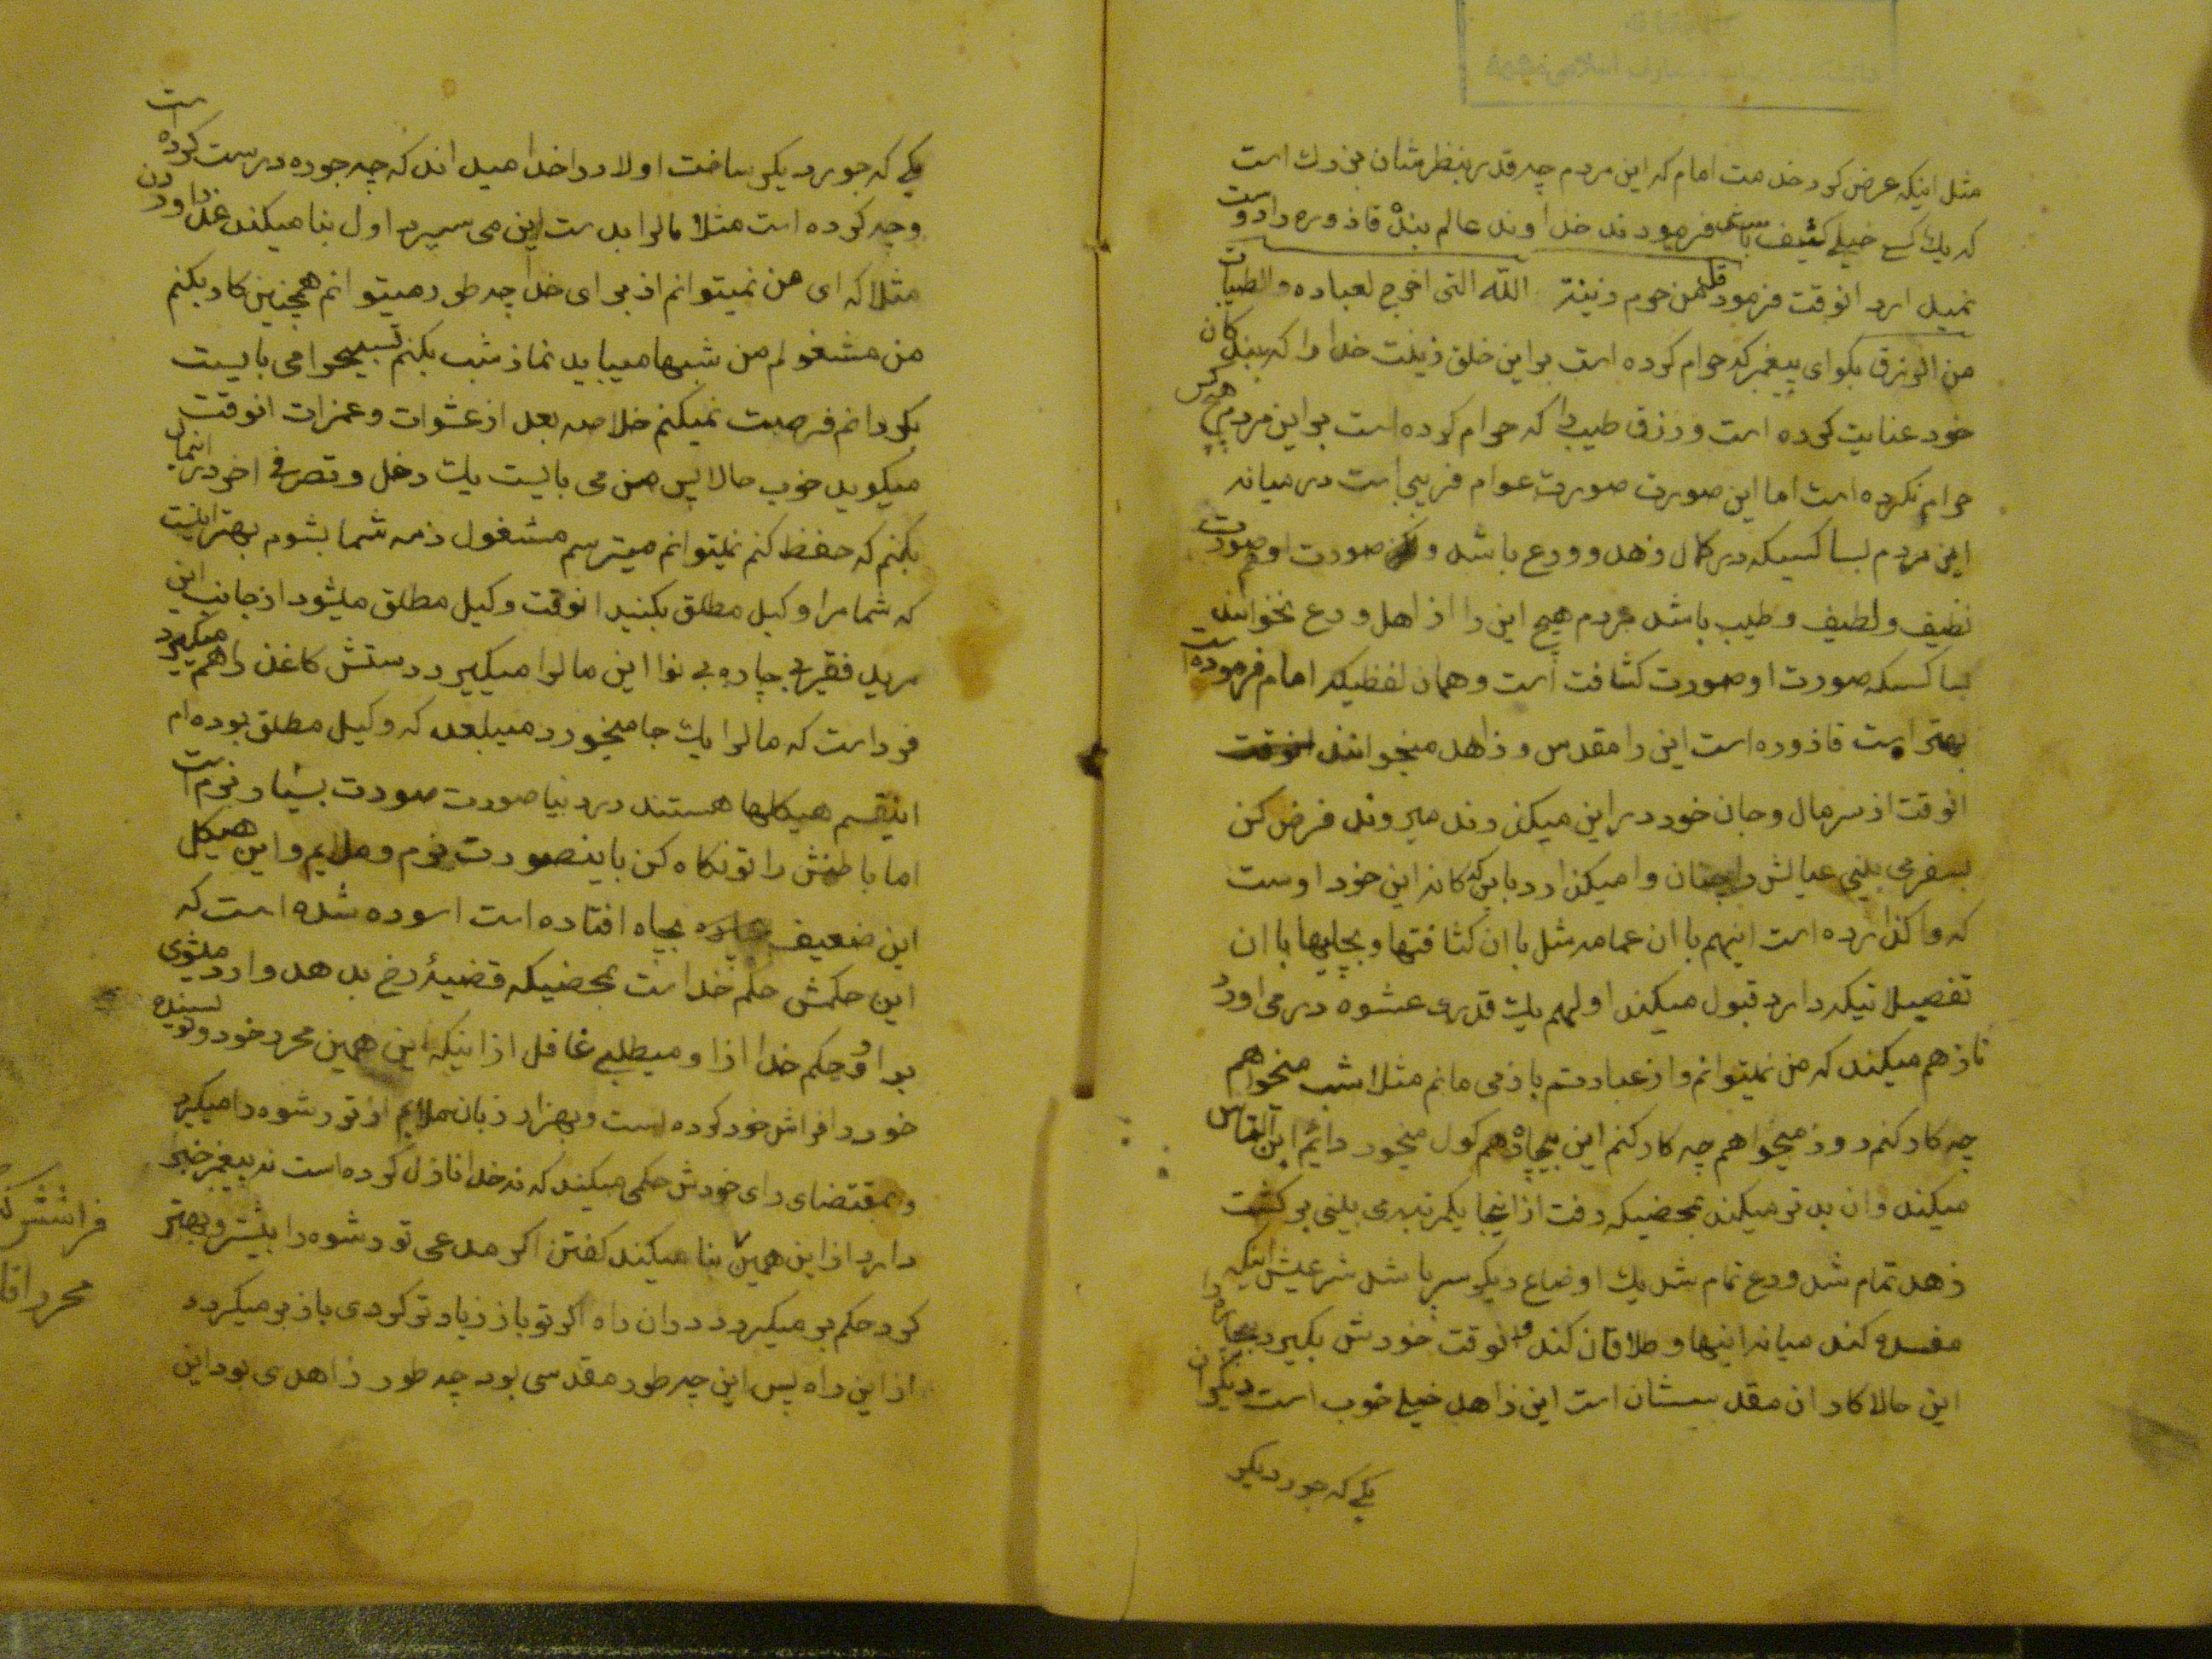 مثل اینکه عرض کرد خدمت امام که این مردم چه قدر بنظرشان بزرك است
که یك کسے خیلے کثیف باشد فرمودند خداوند عالم بنده قاذوره را دوست
نمیدارد انوقت فرمود قل من حرم زینة الله التی اخرج لعباده والطیبات
من الرزق بکو ای پیغمبر که حرام کرده است بر این خلق زینت خدا را که ببندکان
خود عنایت کرده است و رزق طیب را که حرام کرده است بر این مردم هیچکس
حرام نکرده است اما این صورت صورت عوام فریبی است در میانه
این مردم بسا کسیکه در کمال زهد و ورع باشد و صورت او صورت
نظیف و لطیف و طیب باشد مردم هیچ این را از اهل ورع نخوانند
بسا کسیکه صورت او صورت کثافت است و همان لفظیکه امام فرموده است
بهتر است قاذوره است این را مقدس و زاهد میخوانند
انوقت از سر مال و جان خود در راین میکذرند میروند فرض کن
بسفر می بینی عیالش را چنان وا میکذارد باین که کانه این خود اوست
که وا کذارده است اینهم با ان عمامه مثل با ان کثافتها و با ان
تفصیلاتیکه دارد قبول میکند اولهم یك قدری عشوه در می اورد
ناز هم میکند که من نمیتوانم و از عبادتم باز می مانم مثلا شب میخواهم
چه کار کنم روز میخواهم چه کار کنم این بیچاره هم کول میخورد دائم این التماس
میکند و ان بدتر میکند بمحضیکه رفت از اینجا یکمرتبه می بینی بر کشت
زهد تمام شد ورع تمام شد یك اوضاع دیکر سرپا شد شرعیش اینکه
مفسده کند میانه اینها و طلاقان کند و انوقت خودش بکیرد
این حالا کار ان مقدسشان است این زاهد خیلے خوب است دیکران
یکے که جور دیکر
یکے که جور دیکر ساخت اولاد را خدا میداند که چه جوره درست کرده است
و چه کرده است مثلا مال را بدست این می سپرد اول بنا میکند عذر اوردن
مثلا که ای من نمیتوانم از برای خدا چه طور میتوانم همچنین کار بکنم
من مشغولم من شبها میباید نماز شب بکنم تسبیحرا می بایست
بکردانم فرصت نمیکنم خلاصه بعد از عشوات و غمزات انوقت
میکوید خوب حالا پس من می بایست یك دخل و تصرفے اخر در انها
بکنم که حفظ کنم نمیتوانم میترسم مشغول ذمه شما بشوم بهتر اینست
که شما مرا وکیل مطلق بکنید انوقت وکیل مطلق میشود از جانب این
مرید فقیر بے چاره بے نوا این مالرا میکیرد دستش کاغذ را هم میکیرد
فردا است که مالرا یك جا میخورد میبلعد که وکیل مطلق بوده ام
اینقسم هیکلها هستند در دنیا صورت صورت بسیار نرم است
اما باطنش را تو نکاه کن باینصورت نرم و ملایم و این هیکل
این ضعیف بیچاره بچاه افتاده است اسوده شده است که
این حکمش حکم خداست بمحضیکه قضیهٔ رخ بدهد وارد میشوی
بر او و حکم خدا را از او میطلبے غافل از اینکه این همین محرر خود و نویسنده
خود را فراش خود کرده است و بهزار زبان ملایم از تو رشوه را میکیرد
و بمقتضای رای خودش حکمی میکند که نه خدا نازل کرده است نه پیغمبر خبر
دارد از این همین بنا میکند کفتن اکر مدعی تو رشوه را بیشتر و بهتر
کرد حکم بر میکیرد در ان راه اکر تو باز زیادتر کردی باز بر میکردد
از این راه پس این چه طور مقدسی بود چه طور زاهدی بود این